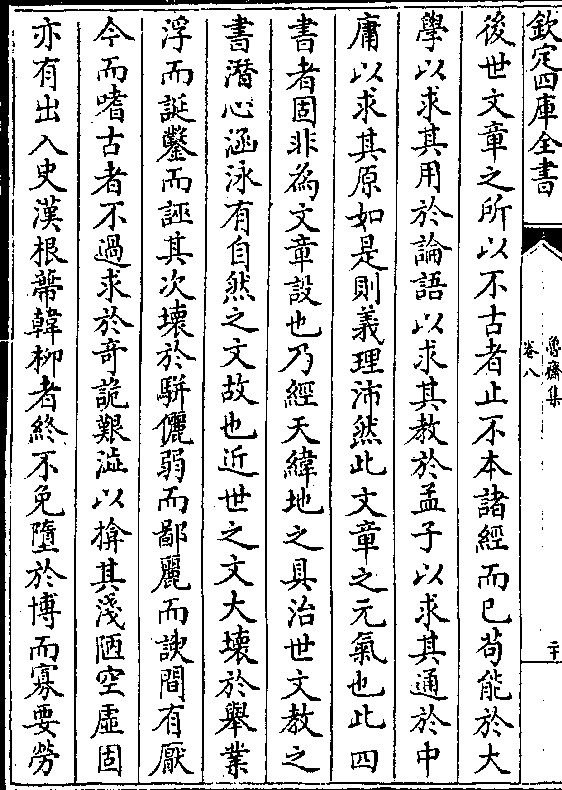 欽定四庫全書
魯齋集
卷八
二十
後世文章之所以不古者止不本諸經而已苟能於大
學以求其用於論語以求其教於孟子以求其通於中
庸以求其原如是則義理沛然此文章之元氣也此四
書者固非為文章設也乃經天緯地之具治世文教之
書潛心涵泳有自然之文故也近世之文大壞於舉業
浮而誕鑿而誣其次壞於駢儷弱而鄙麗而諛間有厭
今而嗜古者不過求於奇詭艱澁以揜其淺陋空虛固
亦有出入史漢根蔕韓柳者終不免墮於博而寡要勞